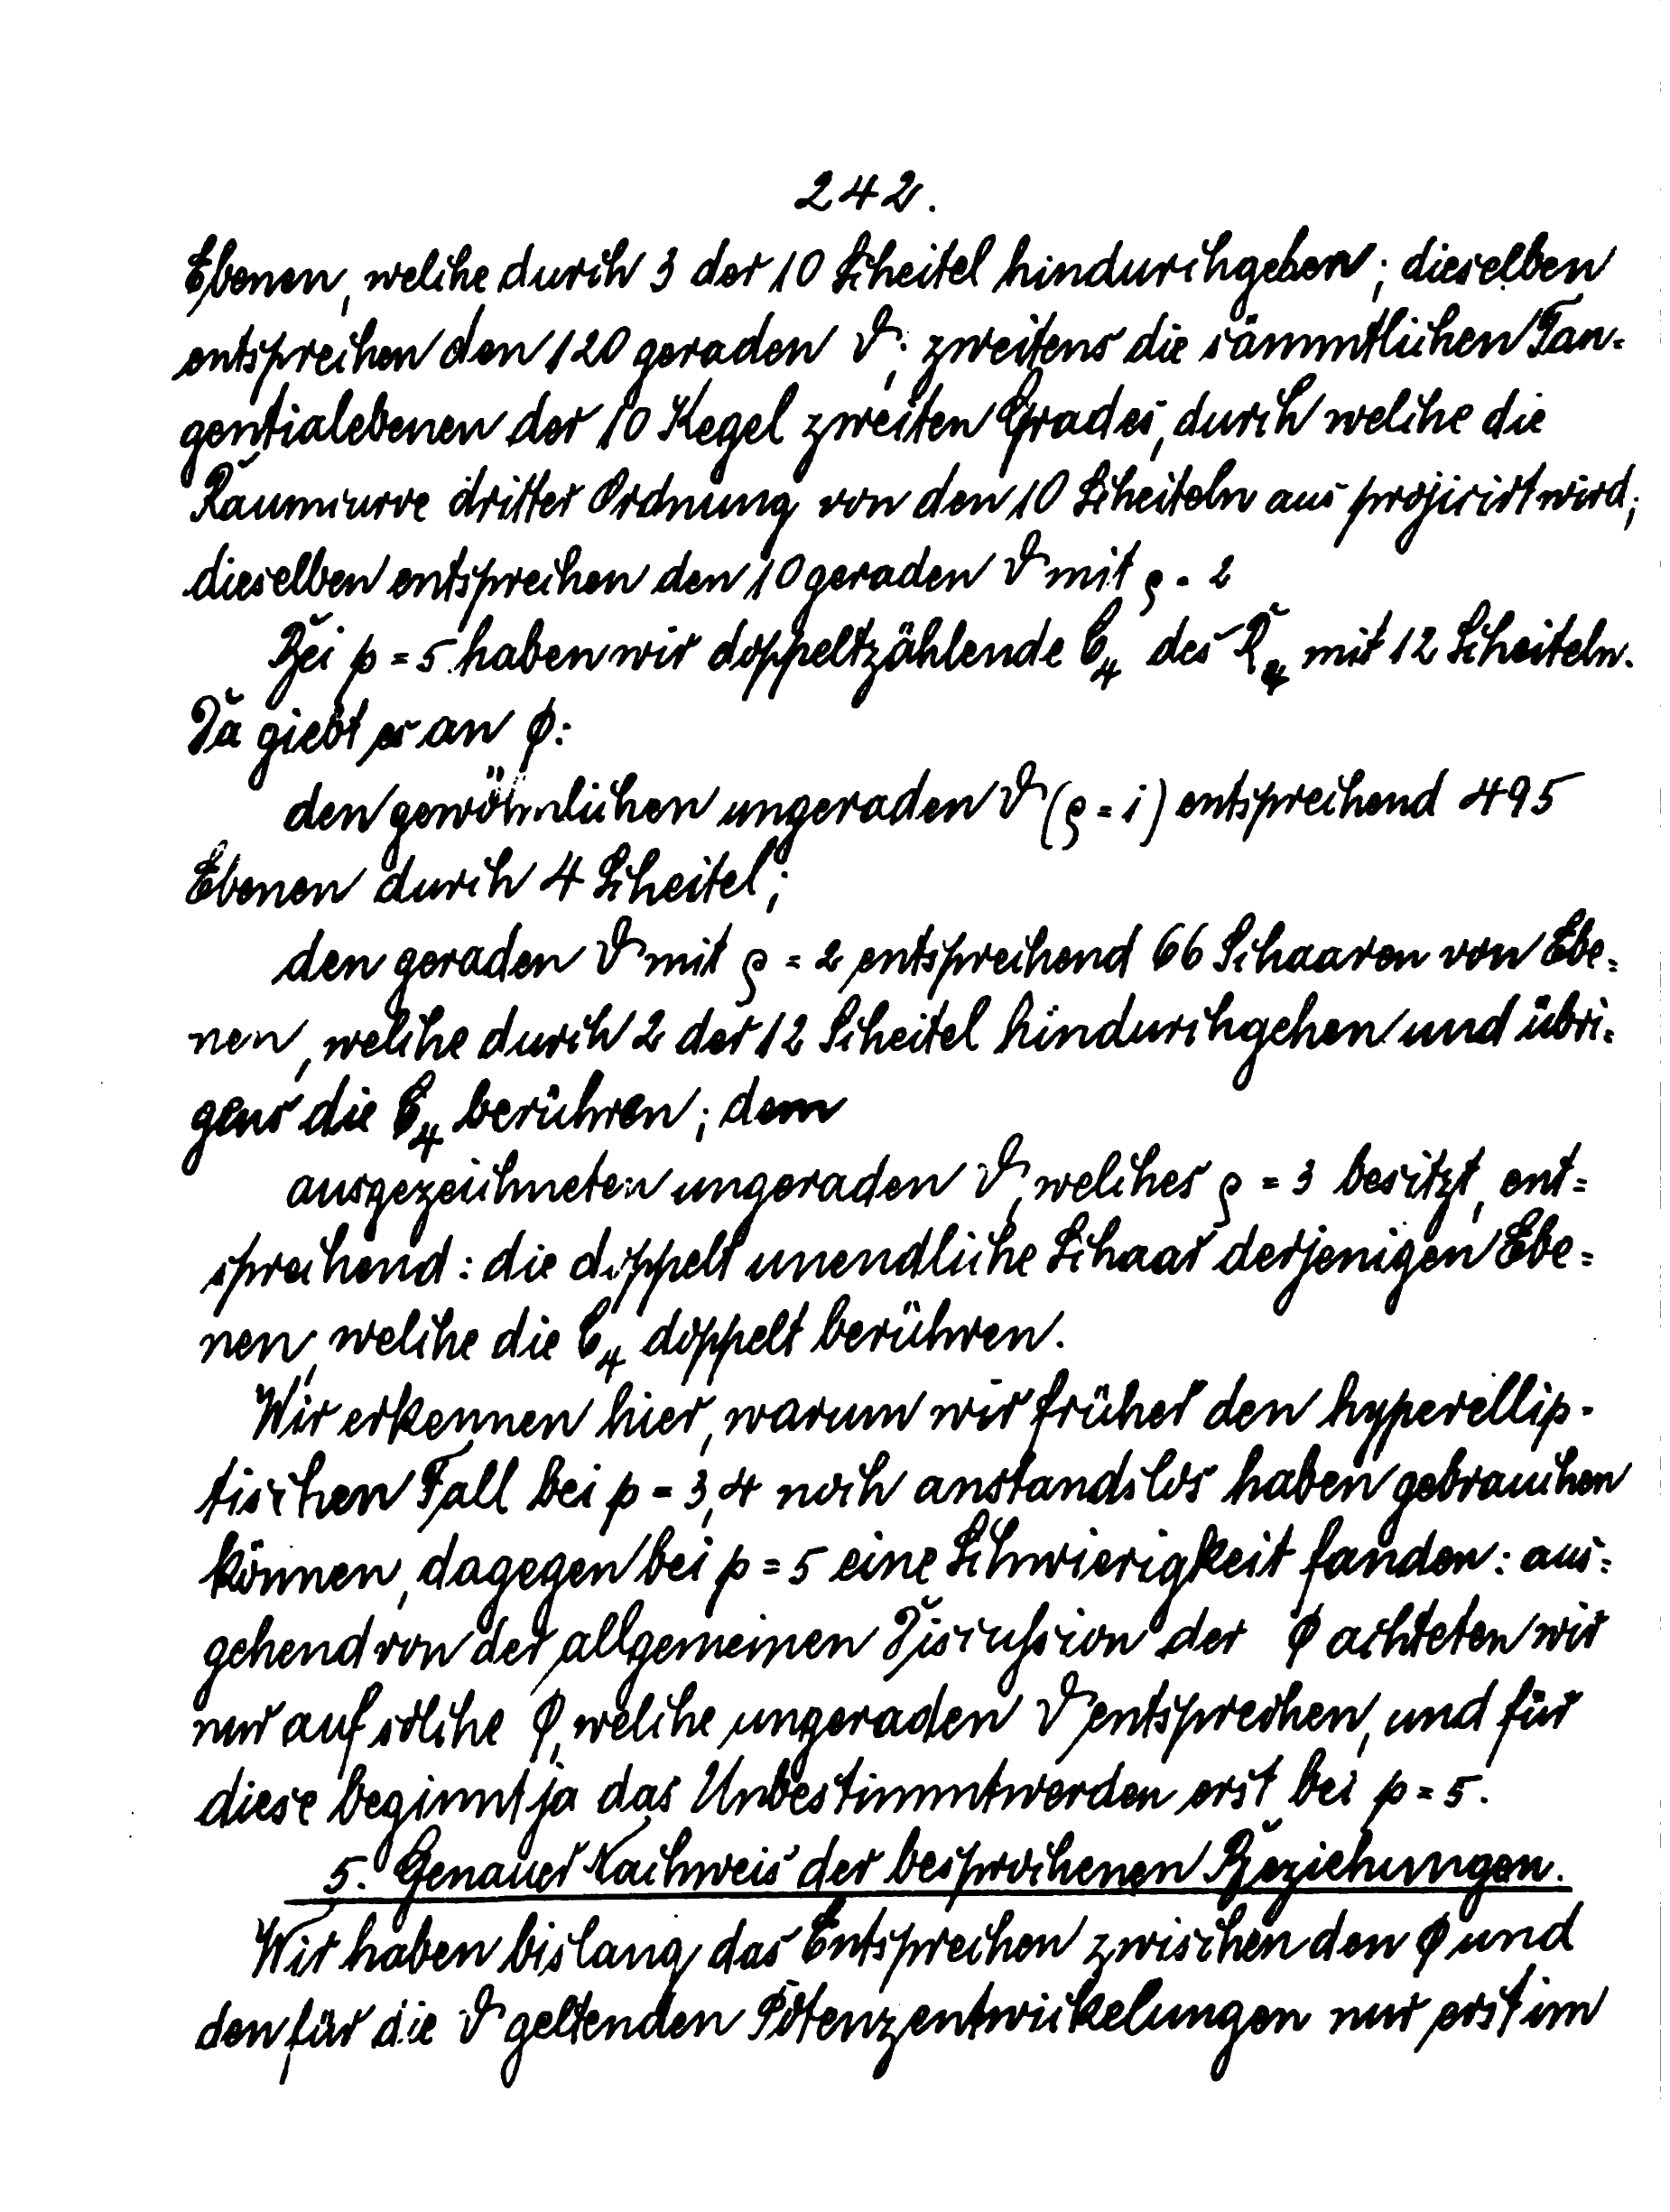 242.
Ebenen, welche durch 3 der 10 Scheitel hindurchgehen; dieselben
entsprechen den 120 geraden ϑ; zweitens die sämmtlichen Tan-
gentialebenen der 10 Kegel zweiten Grades, durch welche die
Raumcurve dritter Ordnung von den 10 Scheiteln aus projicirt wird;
dieselben entsprechen den 10 geraden ϑ mit ρ = 2
Bei p = 5 haben wir doppeltzählende C₄ des R₄ mit 12 Scheiteln.
Da giebt es an φ:
den gewöhnlichen ungeraden ϑ (ρ = 1) entsprechend 495
Ebenen durch 4 Scheitel;
den geraden ϑ mit ρ = 2 entsprechend 66 Schaaren von Ebe=
nen, welche durch 2 der 12 Scheitel hindurchgehen und übri=
gens die C₄ berühren; dem
ausgezeichneten ungeraden ϑ, welches ρ = 3 besitzt, ent=
sprechend: die doppelt unendliche Schaar derjenigen Ebe=
nen, welche die C₄ doppelt berühren.
Wir erkennen hier, warum wir früher den hyperellip-
tischen Fall bei p = 3, 4 noch anstandslos haben gebrauchen
können, dagegen bei p = 5 eine Schwierigkeit fanden: aus=
gehend von der allgemeinen Discussion der φ achteten wir
nur auf solche φ, welche ungeraden ϑ entsprechen, und für
diese beginnt ja das Unbestimmtwerden erst bei p = 5.
5. Genauer Nachweis der besprochenen Beziehungen.
Wir haben bislang das Entsprechen zwischen den φ und
den für die ϑ geltenden Potenzentwickelungen nur erst im